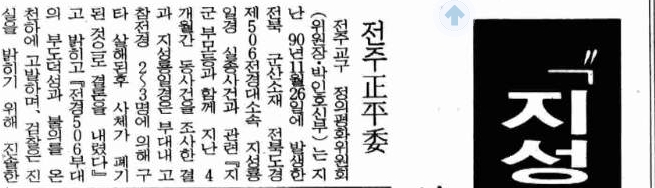 “지성
전주正平委
전주교구 정의평화위원회
(위원장·박인호신부)는 지
난 90년11월26일에 발생한
전북 군산소재 전북도경
제506전경대소속 지성룡
일경 실종사건과 관련『지
군 부모등과 함께 지난 4
개월간 동사건을 조사한 결
과 지성룡일경은 부대내 고
참전경 2~3명에 의해 구
타 살해된후 사체가 폐기
된 것으로 결론을 내렸다』
고 밝히고『전경506부대
의 부도덕성과 불의를 온
천하에 고발하며, 검찰은 진
실을 밝히기 위해 진솔한